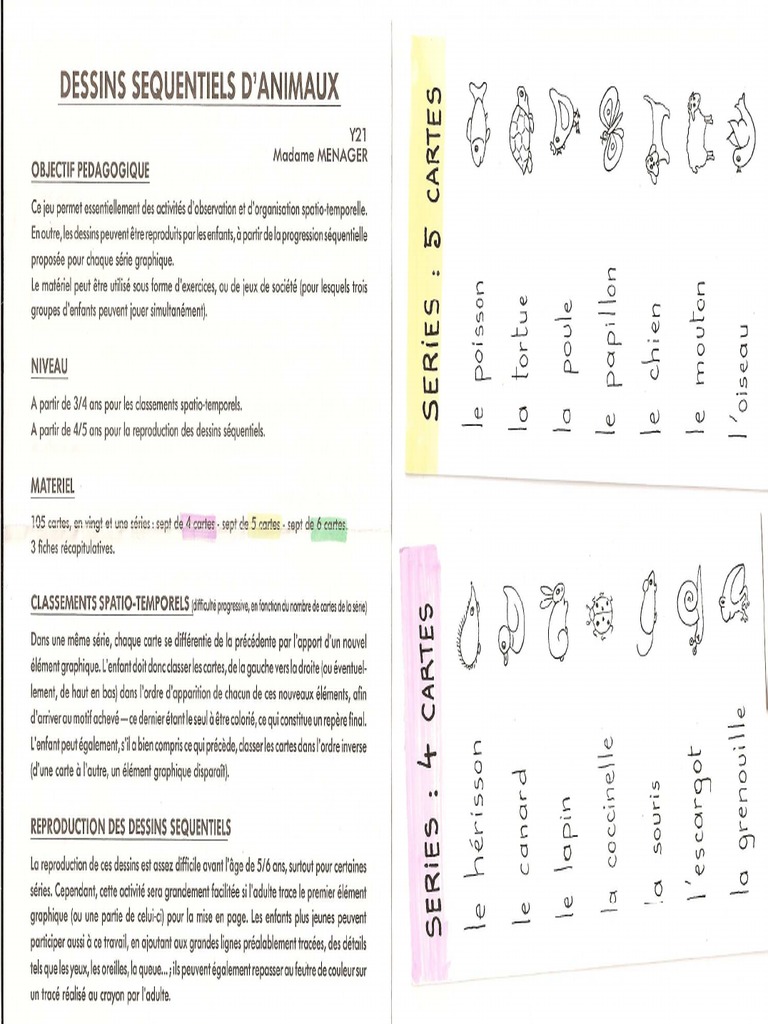 DESSINS SEQUENTIELS D'ANIMAUX
Y21
Madame MENAGER
OBJECTIF PEDAGOGIQUE
Ce jeu permet essentiellement des activités d'observation et d'organisation spatio-temporelle.
En outre, les dessins peuvent être reproduits par les enfants, à partir de la progression séquentielle
proposée pour chaque série graphique.
Le matériel peut être utilisé sous forme d'exercices, ou de jeux de société (pour lesquels trois
groupes d'enfants peuvent jouer simultanément).
NIVEAU
A partir de 3/4 ans pour les classements spatio-temporels.
A partir de 4/5 ans pour la reproduction des dessins séquentiels.
MATERIEL
105 cartes, en vingt et une séries : sept de 4 cartes - sept de 5 cartes - sept de 6 cartes.
3 fiches récapitulatives.
CLASSEMENTS SPATIO-TEMPORELS (difficulté progressive, en fonction du nombre de cartes de la série)
Dans une même série, chaque carte se différentie de la précédente par l'apport d'un nouvel
élément graphique. L'enfant doit donc classer les cartes, de la gauche vers la droite (ou éventuel-
lement, de haut en bas) dans l'ordre d'apparition de chacun de ces nouveaux éléments, afin
d'arriver au motif achevé — ce dernier étant le seul à être colorié, ce qui constitue un repère final.
L'enfant peut également, s'il a bien compris ce qui précède, classer les cartes dans l'ordre inverse
(d'une carte à l'autre, un élément graphique disparaît).
REPRODUCTION DES DESSINS SEQUENTIELS
La reproduction de ces dessins est assez difficile avant l'âge de 5/6 ans, surtout pour certaines
séries. Cependant, cette activité sera grandement facilitée si l'adulte trace le premier élément
graphique (ou une partie de celui-ci) pour la mise en page. Les enfants plus jeunes peuvent
participer aussi à ce travail, en ajoutant aux grandes lignes préalablement tracées, des détails
tels que les yeux, les oreilles, la queue... ; ils peuvent également repasser au feutre de couleur sur
un tracé réalisé au crayon par l'adulte.
SERIES : 5 CARTES
le poisson
la tortue
la poule
le papillon
le chien
le mouton
l'oiseau
SERIES : 4 CARTES
le hérisson
le canard
le lapin
la coccinelle
la souris
l'escargot
la grenouille